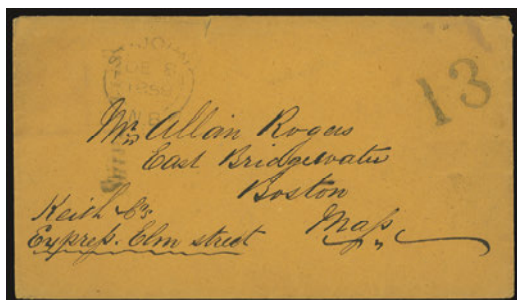 ST JOHN
DE 8
N.B.
13
Mr Allan Rogers
East Bridgewater
Boston
Mass
Keith & Co's
Express. Elm street